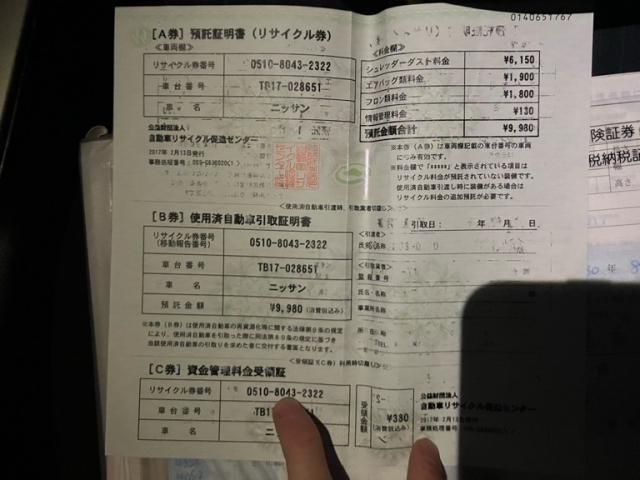 0140651767
[A券] 預託証明書 (リサイクル券)
≪車両欄≫
リサイクル券番号 0510-8043-2322
車台番号 TB17-028651
車名 ニッサン
公益財団法人
自動車リサイクル促進センター
2017年 2月13日発行
≪料金欄≫
シュレッダーダスト料金 ¥6,150
エアバッグ類料金 ¥1,900
フロン類料金 ¥1,800
情報管理料金 ¥130
預託金額合計 ¥9,980
※本券(A券)は車両欄記載の車台番号の車両にのみ有効です。
リサイクル料金が預託されていない装備です。
使用済自動車引渡し時に装備がある場合は
リサイクル料金の追加預託が必要です。
[B券] 使用済自動車引取証明書
リサイクル券番号
(移動報告番号) 0510-8043-2322
車台番号 TB17-028651
車名 ニッサン
預託金額 ¥9,980 (消費税込み)
引取日: 年 月 日
<引渡者>
氏名・名称
<引取業者>
氏名・名称
事業所名
所在地
TEL
※本券(B券)は使用済自動車の再資源化等に関する法律第9条の規定
により、使用済自動車を引取った際に同法第80条の規定に基づき
当該使用済自動車の引取りを求めた者に交付する書面となります。
[C券] 資金管理料金受領証
リサイクル券番号 0510-8043-2322
車台番号
車名
受領金額 ¥380 (消費税込み)
公益財団法人
自動車リサイクル促進センター
2017年 2月13日発行
険証券
税納税証